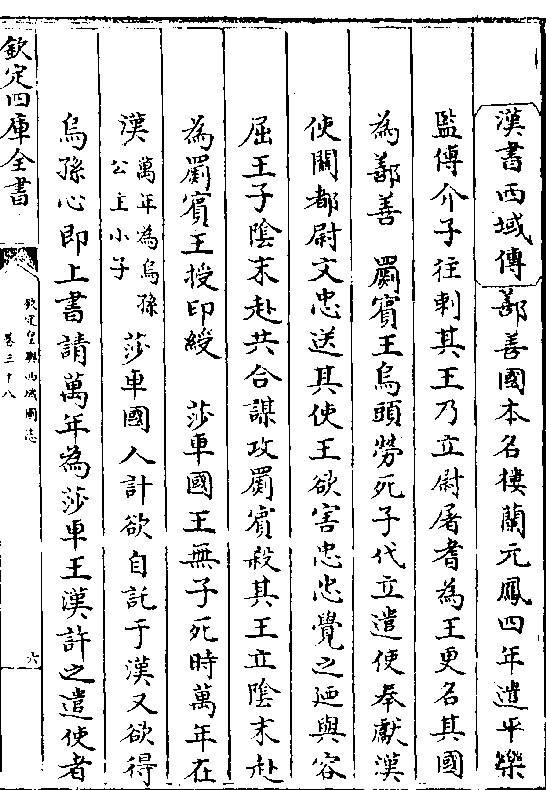 漢書西域傳鄯善國本名樓蘭元鳳四年遣平樂
監傅介子往刺其王乃立尉屠耆為王更名其國
為鄯善　罽賔王烏頭勞死子代立遣使奉獻漢
使關都尉文忠送其使王欲害忠忠覺之廼與容
屈王子陰末赴共合謀攻罽賔殺其王立陰末赴
為罽賔王授印綬　莎車國王無子死時萬年在
漢萬年為烏孫公主小子莎車國人計欲自託于漢又欲得
烏孫心即上書請萬年為莎車王漢許之遣使者
欽定四庫全書
欽定皇輿西域圖志
卷三十八
六